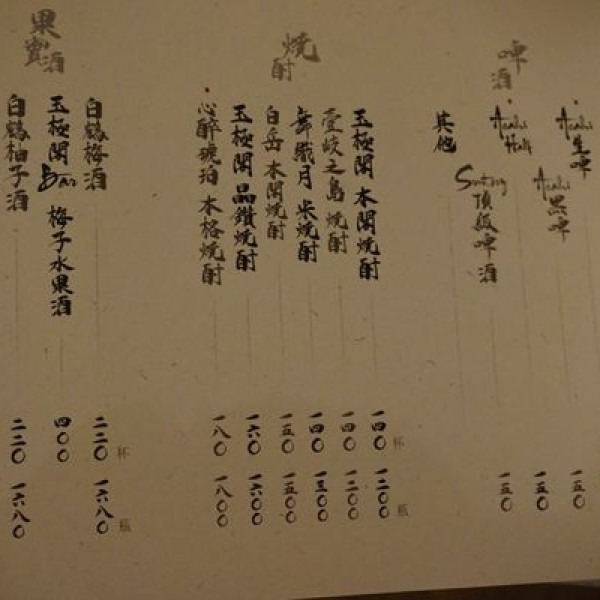 啤酒
Asahi 生啤
一五〇
Asahi 黑啤
一五〇
Asahi Half
Suntory 頂級啤酒
一五〇
其他
燒酎
玉極閣 本閣燒酎
一四〇 杯
一二〇〇 瓶
壹岐之島 燒酎
一四〇
一二〇〇
舞織月 米燒酎
一四〇
一三〇〇
白岳 本閣燒酎
一五〇
一五〇〇
玉極閣 晶鑽燒酎
一六〇
一六〇〇
心醉琥珀 本格燒酎
一八〇
一八〇〇
果實酒
白鶴梅酒
二二〇 杯
一六八〇 瓶
玉極閣 Bar 梅子水果酒
四〇〇
白鶴柚子酒
二二〇
一六八〇